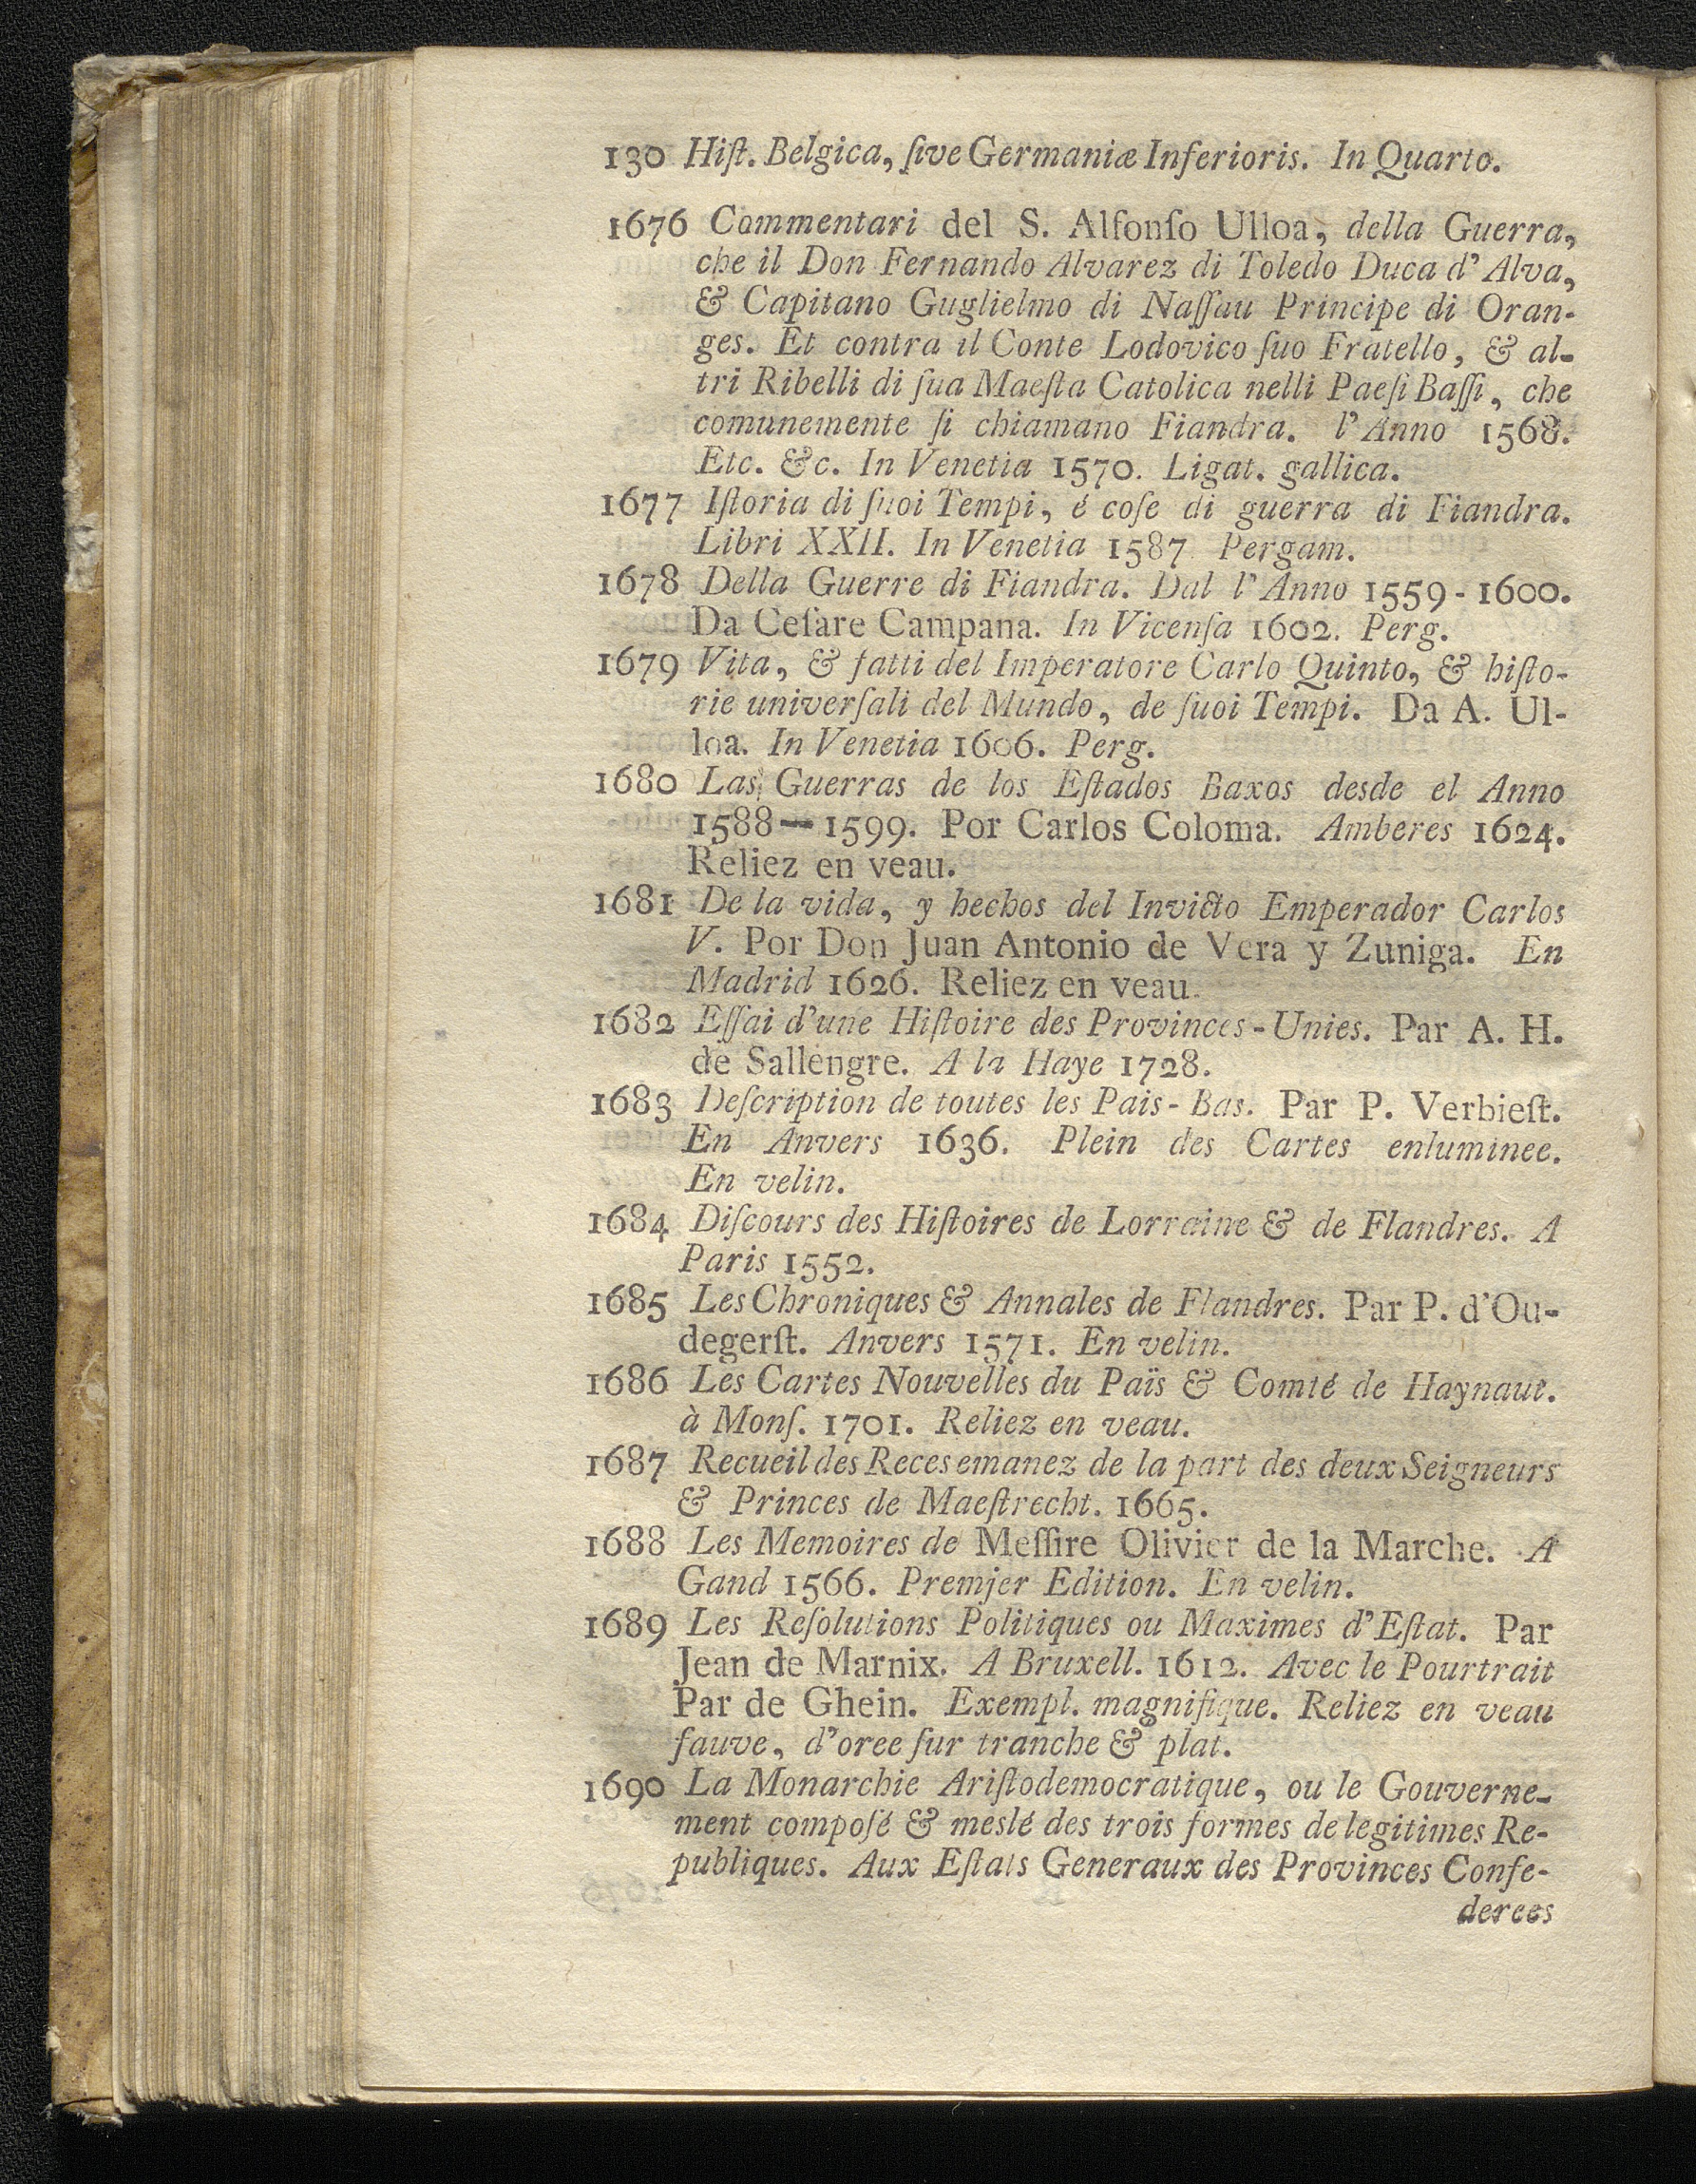 130 Hiſt. Belgica, ſive Germaniæ Inferioris. In Quarto.
1676 Commentari del S. Alfonſo Ulloa, della Guerra,
che il Don Fernando Alvarez di Toledo Duca d' Alva,
& Capitano Guglielmo di Naſſau Principe di Oran-
ges. Et contra il Conte Lodovico ſuo Fratello, & al-
tri Ribelli di ſua Maeſta Catolica nelli Paeſi Baſſi, che
comunemente ſi chiamano Fiandra. l' Anno 1568.
Etc. &c. In Venetia 1570. Ligat. gallica.
1677 Iſtoria di ſuoi Tempi, é coſe di guerra di Fiandra.
Libri XXII. In Venetia 1587. Pergam.
1678 Della Guerre di Fiandra. Dal l' Anno 1559-1600.
Da Ceſare Campana. In Vicenſa 1602. Perg.
1679 Vita, & fatti del Imperatore Carlo Quinto, & hiſto-
rie univerſali del Mundo, de ſuoi Tempi. Da A. Ul-
loa. In Venetia 1606. Perg.
1680 Las Guerras de los Eſtados Baxos desde el Anno
1588—1599. Por Carlos Coloma. Amberes 1624.
Reliez en veau.
1681 De la vida, y hechos del Invicto Emperador Carlos
V. Por Don Juan Antonio de Vera y Zuniga. En
Madrid 1626. Reliez en veau.
1682 Eſſai d'une Hiſtoire des Provinces-Unies. Par A. H.
de Sallengre. A la Haye 1728.
1683 Deſcription de toutes les Pais-Bas. Par P. Verbieſt.
En Anvers 1636. Plein des Cartes enluminee.
En velin.
1684 Diſcours des Hiſtoires de Lorraine & de Flandres. A
Paris 1552.
1685 Les Chroniques & Annales de Flandres. Par P. d'Ou-
degerſt. Anvers 1571. En velin.
1686 Les Cartes Nouvelles du Païs & Comté de Haynaut.
à Monſ. 1701. Reliez en veau.
1687 Recueil des Reces emanez de la part des deux Seigneurs
& Princes de Maeſtrecht. 1665.
1688 Les Memoires de Meſſire Olivier de la Marche. A
Gand 1566. Premjer Edition. En velin.
1689 Les Reſolutions Politiques ou Maximes d'Eſtat. Par
Jean de Marnix. A Bruxell. 1612. Avec le Pourtrait
Par de Ghein. Exempl. magnifique. Reliez en veau
fauve, d'oree ſur tranche & plat.
1690 La Monarchie Ariſtodemocratique, ou le Gouverne-
ment compoſé & meslé des trois formes de legitimes Re-
publiques. Aux Eſtats Generaux des Provinces Confe-
derees